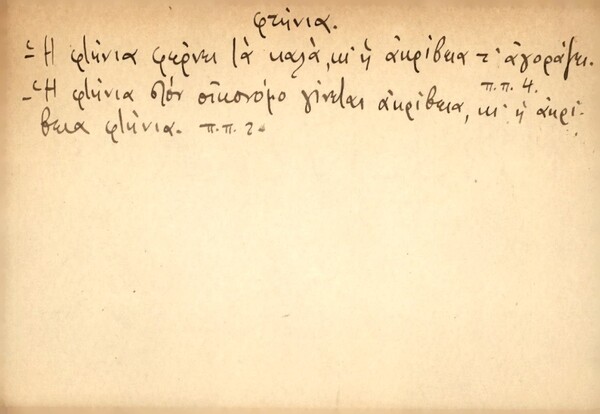 φτήνια.
- Ἡ φτήνια φέρνει τὰ καλὰ, κι' ἡ ἀκρίβεια τ' ἀγοράζει.
π.π. 4.
- Ἡ φτήνια στὸν οἰκονόμο γίνεται ἀκρίβεια, κι' ἡ ἀκρί-
βεια φτήνια. π.π. 2.